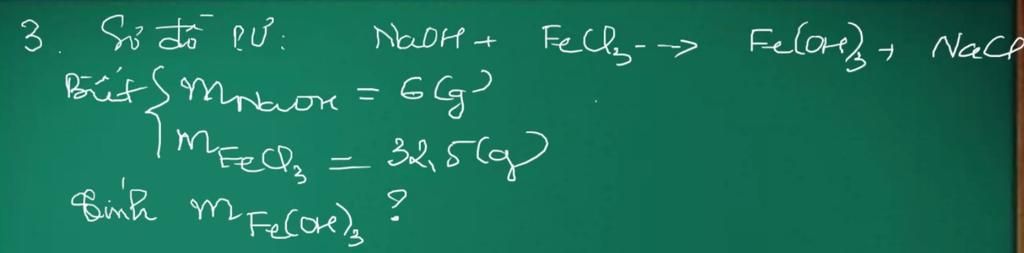 3. Sơ đồ PƯ: NaOH + FeCl₃ --> Fe(OH)₃ + NaCl
Biết { mNaOH = 6(g)
mFeCl₃ = 32,5(g)
Tính mFe(OH)₃ ?